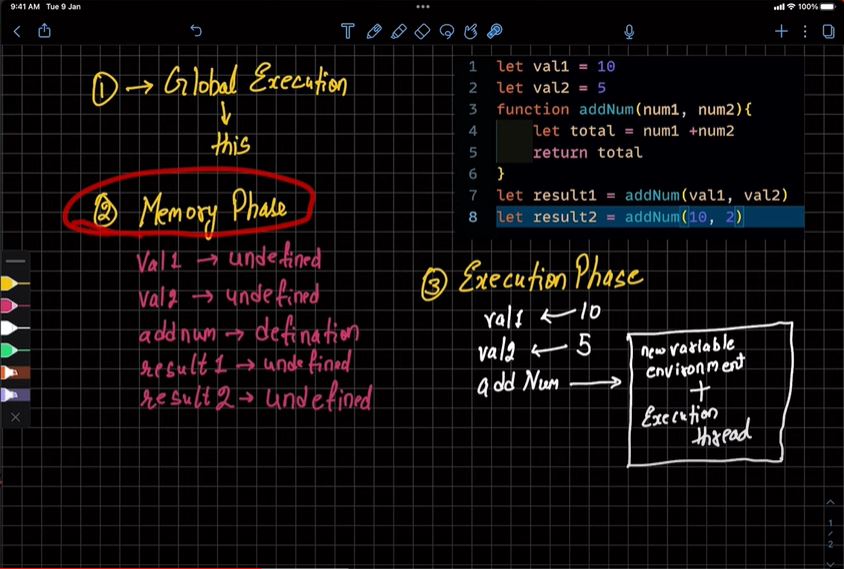 9:41 AM Tue 9 Jan
100%
① → Global Execution
↓
this
② Memory Phase
Val1 → undefined
val2 → undefined
addnum → defination
result1 → undefined
result2 → undefined
1 let val1 = 10
2 let val2 = 5
3 function addNum(num1, num2){
4 let total = num1 +num2
5 return total
6 }
7 let result1 = addNum(val1, val2)
8 let result2 = addNum(10, 2)
③ Execution Phase
val1 ← 10
val2 ← 5
add Num →
new variable
environment
+
Execution
thread
1
/
2